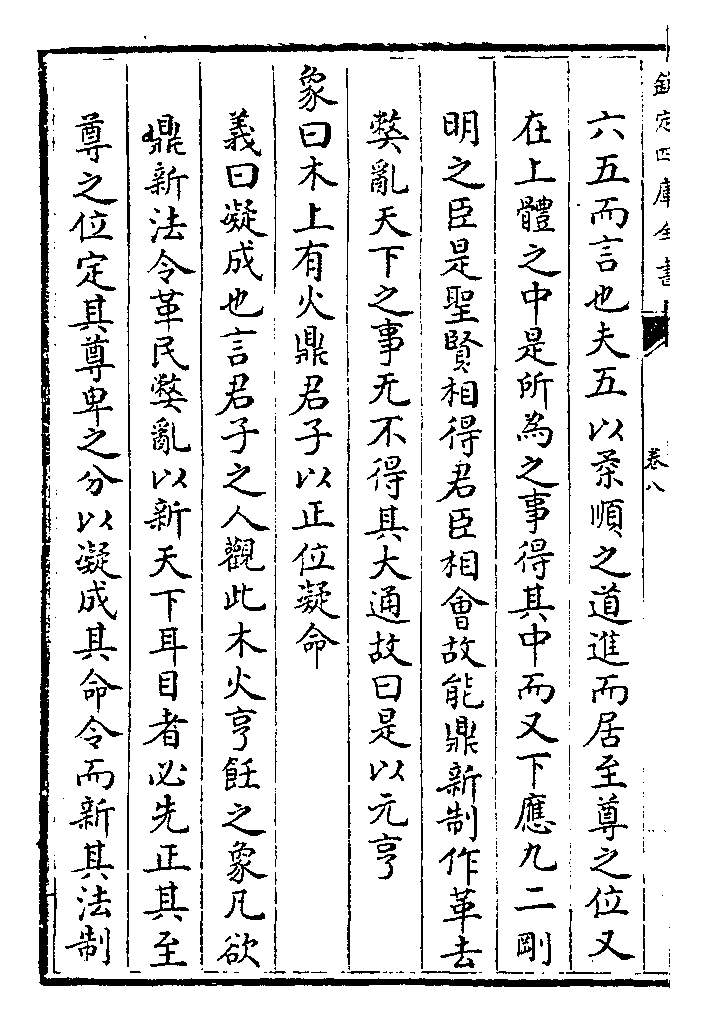 欽定四庫全書
卷八
六五而言也夫五以柔順之道進而居至尊之位又
在上體之中是所為之事得其中而又下應九二剛
明之臣是聖賢相得君臣相會故能鼎新制作革去
弊亂天下之事无不得其大通故曰是以元亨
象曰木上有火鼎君子以正位凝命
義曰凝成也言君子之人觀此木火亨飪之象凡欲
鼎新法令革民弊亂以新天下耳目者必先正其至
尊之位定其尊卑之分以凝成其命令而新其法制